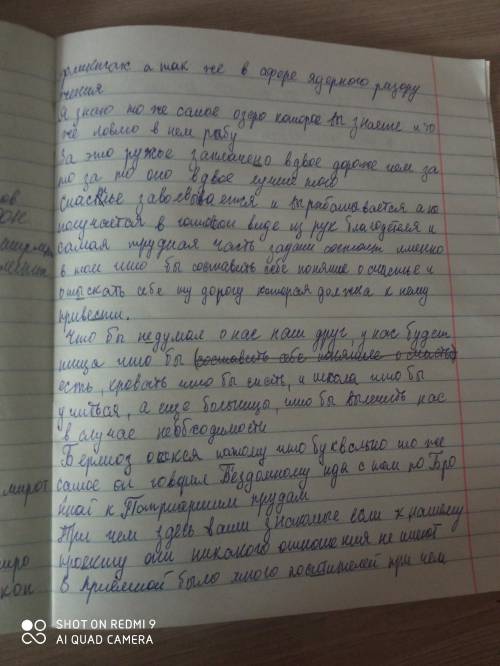 а так же в сфере ядерного разору
жения
Я знаю то же самое озеро которое вы знаете и то
же ловлю в нем рыбу
За это ружье заплачено вдвое дороже чем за
то за то оно вдвое лучше того
Счастье завоевывается и вырабатывается а не
получается в готовом виде из рук благодетеля и
самая трудная часть задачи состоит именно
в том что бы составить себе понятие о счастье и
отыскать себе ту дорогу которая должна к нему
привести.
Что бы не думал о нас наш друг, у нас будет
пища что бы (составить себе понятие о счастье)
есть, кровать что бы спать, и школа что бы
учиться, а еще больницы, что бы вылечить нас
в случае необходимости
Берлиоз осекся потому что буквально то же
самое он говорил Бездомному идя с ним по Бро
нной к Патриаршим прудам
При чем здесь ваши знакомые если к нашему
проекту они никакого отношения не имеют
В приемной было много посетителей при чем
мирот
кок
SHOT ON REDMI 9
AI QUAD CAMERA